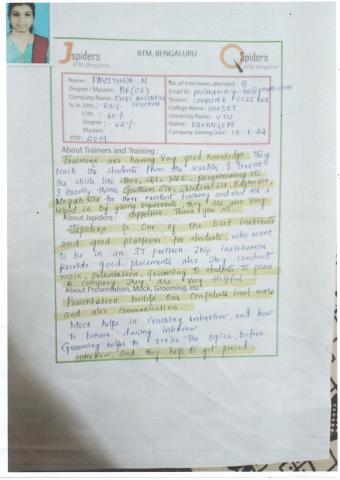 Jspiders BTM, BENGALURU Qspiders
BTM, Bangalore
Name: PAVITHRA.N
Degree / Masters: BE(CS)
Company Name: EXCEL BUSINESS SOLUTION
% in 10th
12th : 60%
Degree : 62%
Masters
YOP: 2019
No. of interviews attended: 8
Email ID:
Stream: COMPUTER SCIENCE
College Name:
University Name: VTU
Native: DAVANGERE
Company Joining Date:
About Trainers and Training:
Trainings are having very good knowledge. They
teach the students from the scratch. I learnt
the skills like Java, SQL, programming etc.
I Heartly thank Gowtham Sir,
for their excellent teaching and also
helped in by giving they are also very
supportive. Thank you all.
About Jspiders:
Jspiders is One of the best institute
and good platform for students, who want
to be in an IT position. This Institution
provide good placements also. They conduct
mock, presentation, Grooming to students to place
a company. They are very helpful
About Presentation, Mock, Grooming, etc:
Presentation builds our Confidents level more
and also communication.
Mock helps in Craching interview and how
to behave during interview
Grooming helps to revise the topics, before
interview, and they help to get placed.